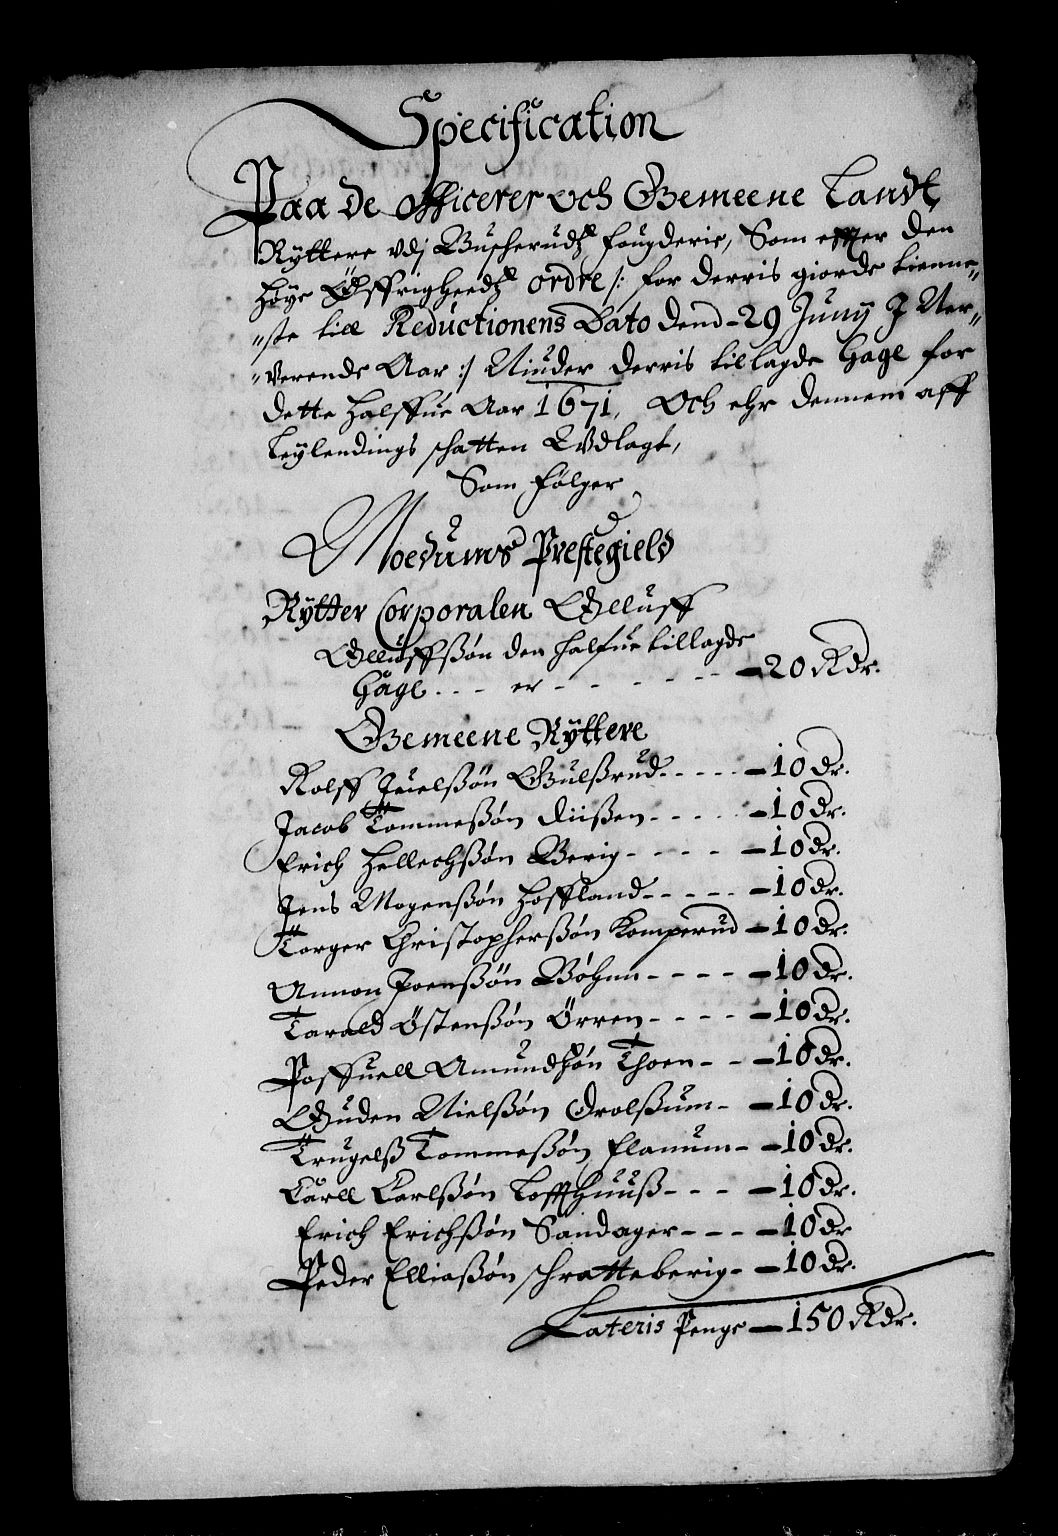 Specification
Paa de officerer och Gemeene Landt
Ryttere vdj Buscherudtz fougderie, Som efter den
höye Öffrigheedtz ordre /: for derris giorde tienne„
„ste till Reductionens Dato dend - 29 Junij J Ner„
„verende Aar :/ Niuder derris tillagde Gage for
dette halffue Aar 1671, Och ehr dennem aff
Leylendings schatten Udlagt,
Som følger
Moedums Prestegield
Rytter Corporalen Gulluff
Gulluffssøn den halfue tillagde
Gage - - - er - - - - - - 20 Rdr.
Gemeene Ryttere
Rolff Juelssøn Gulssrud - - - - 10 dr.
Jacob Tommessøn Riissen - - - - 10 dr.
Erich Hellechssøn Berig - - - - 10 dr.
Jens Mogenssøn Hoffland - - - - 10 dr.
Torger Christopherssøn Komperud - 10 dr.
Annon Joenssøn Böhnn - - - - 10 dr.
Tarald Östenssøn Örren - - - - 10 dr.
Poffuell Amundssøn Thoen - - - 10 dr.
Guden Nielssøn Drolssum - - 10 dr.
Trugelss Tommessøn Flanum - - 10 dr.
Carll Carlssøn Loffthuuss - - - - 10 dr.
Erich Erichssøn Sandager - - - - 10 dr
Peder Elliassøn schratteberig - - 10 dr.
Lateris Penge - 150 Rdr.